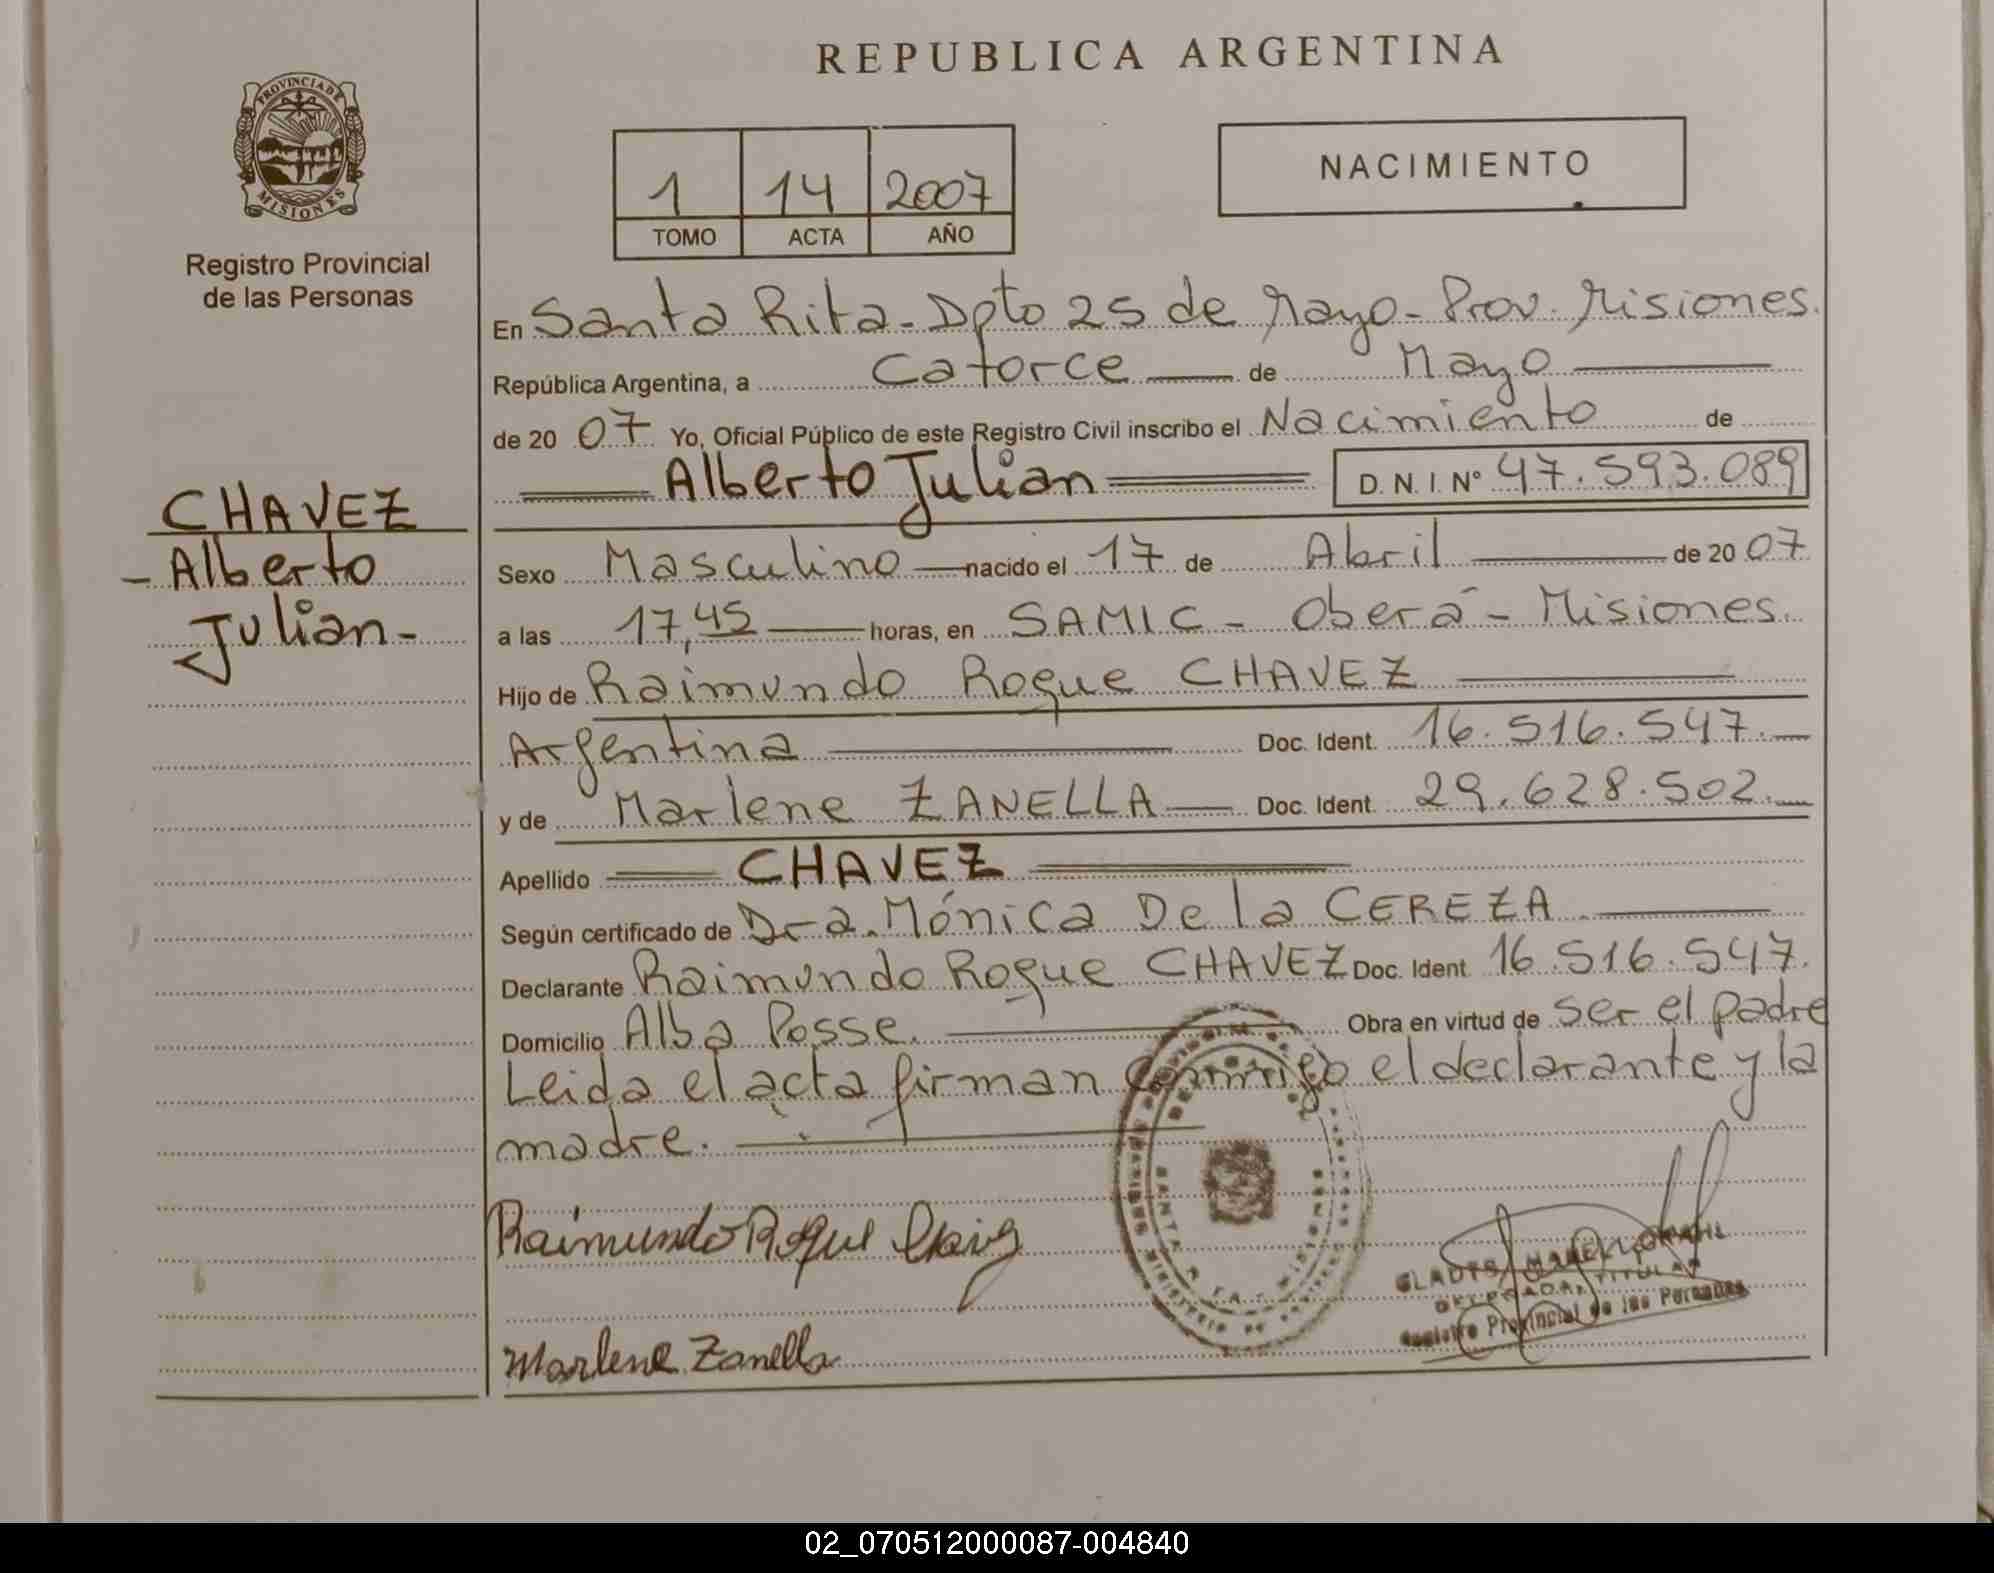 REPUBLICA ARGENTINA
PROVINCIA DE
MISIONES
Registro Provincial
de las Personas
1 14 2007
TOMO ACTA AÑO
NACIMIENTO
En Santa Rita - Dpto 25 de Mayo - Prov. Misiones.
República Argentina, a Catorce de Mayo
de 20 07 Yo, Oficial Público de este Registro Civil inscribo el Nacimiento de
Alberto Julian D.N.I. Nº 47.593.089
CHAVEZ
- Alberto
Julian -
Sexo Masculino nacido el 17 de Abril de 20 07
a las 17,45 horas, en SAMIC - Oberá - Misiones.
Hijo de Raimundo Roque CHAVEZ
Argentina Doc. Ident. 16.516.547.
y de Marlene ZANELLA Doc. Ident. 29.628.502.
Apellido CHAVEZ
Según certificado de Dra. Mónica De la CEREZA
Declarante Raimundo Roque CHAVEZ Doc. Ident 16.516.547.
Domicilio Alba Posse. Obra en virtud de ser el padre
Leida el acta firman conmigo el declarante y la
madre.
Raimundo Roque
Marlene Zanella
SANTA RITA
GLADYS
TITULAR
Registro Provincial de las Personas
02_070512000087-004840